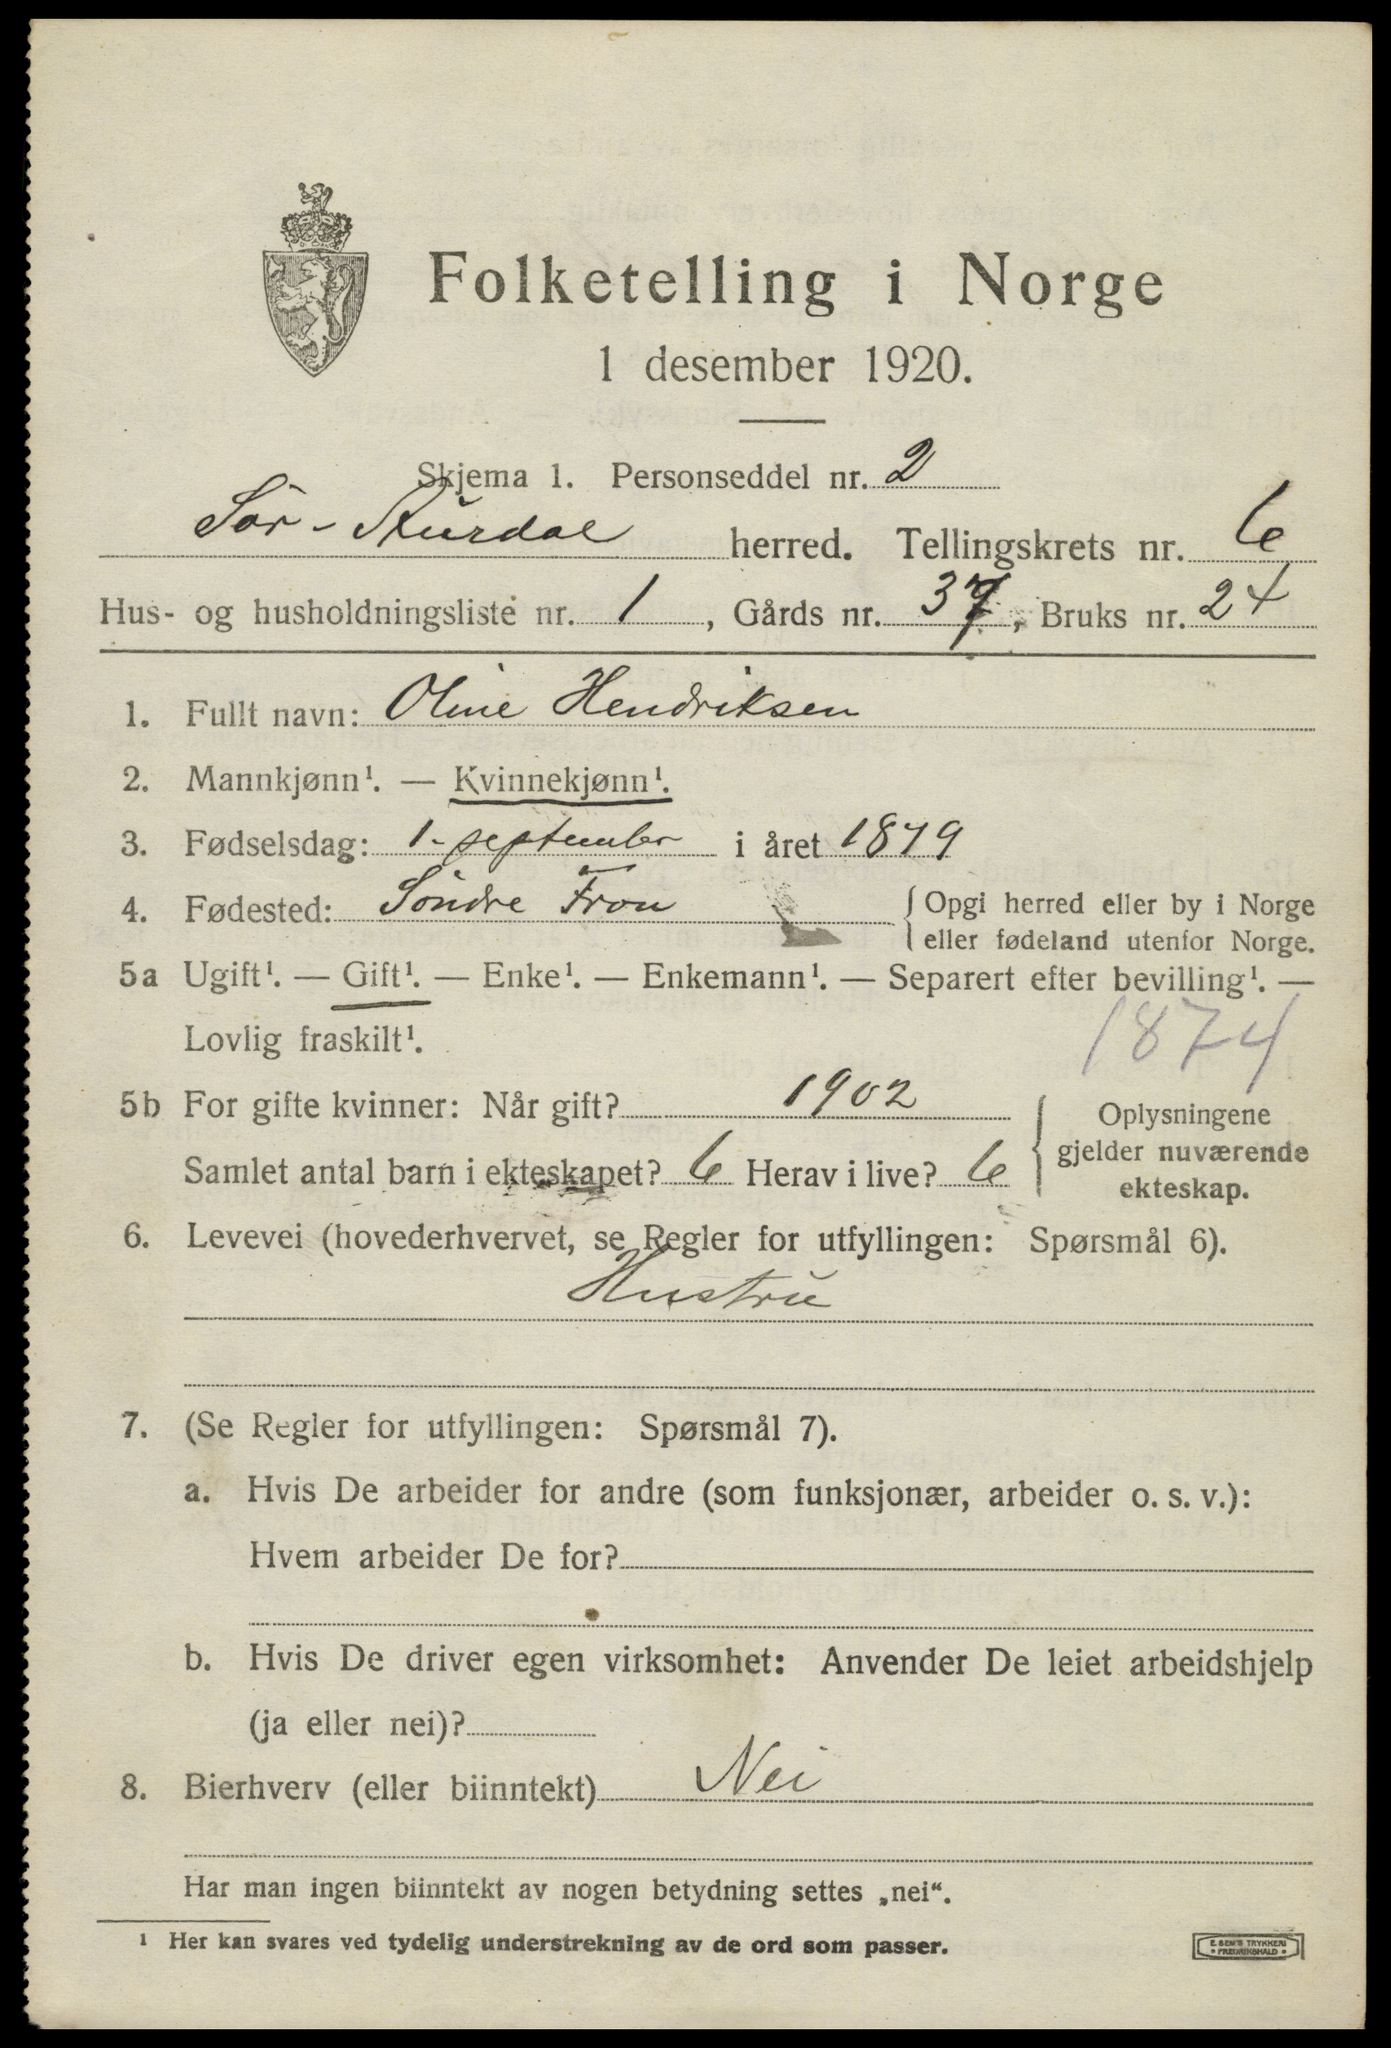 Folketelling i Norge
1 desember 1920.
Skjema 1. Personseddel nr. 2
Sør-Aurdal herred. Tellingskrets nr. 6
Hus- og husholdningsliste nr. 1, Gårds nr. 37, Bruks nr. 24
1. Fullt navn: Oline Hendriksen
2. Mannkjønn¹. — Kvinnekjønn¹.
3. Fødselsdag: 1. september i året 1879
4. Fødested: Söndre Fron { Opgi herred eller by i Norge
eller fødeland utenfor Norge.
5a Ugift¹. — Gift¹. — Enke¹. — Enkemann¹. — Separert efter bevilling¹. —
Lovlig fraskilt¹. 1874
5b For gifte kvinner: Når gift? 1902
Samlet antal barn i ekteskapet? 6 Herav i live? 6
{ Oplysningene
gjelder nuværende
ekteskap.
6. Levevei (hovederhvervet, se Regler for utfyllingen: Spørsmål 6).
Hustru
7. (Se Regler for utfyllingen: Spørsmål 7).
a. Hvis De arbeider for andre (som funksjonær, arbeider o. s. v.):
Hvem arbeider De for?
b. Hvis De driver egen virksomhet: Anvender De leiet arbeidshjelp
(ja eller nei)?
8. Bierhverv (eller biinntekt) Nei
Har man ingen biinntekt av nogen betydning settes „nei“.
¹ Her kan svares ved tydelig understrekning av de ord som passer.
E. SEM'S TRYKKERI
• FREDRIKSHALD •